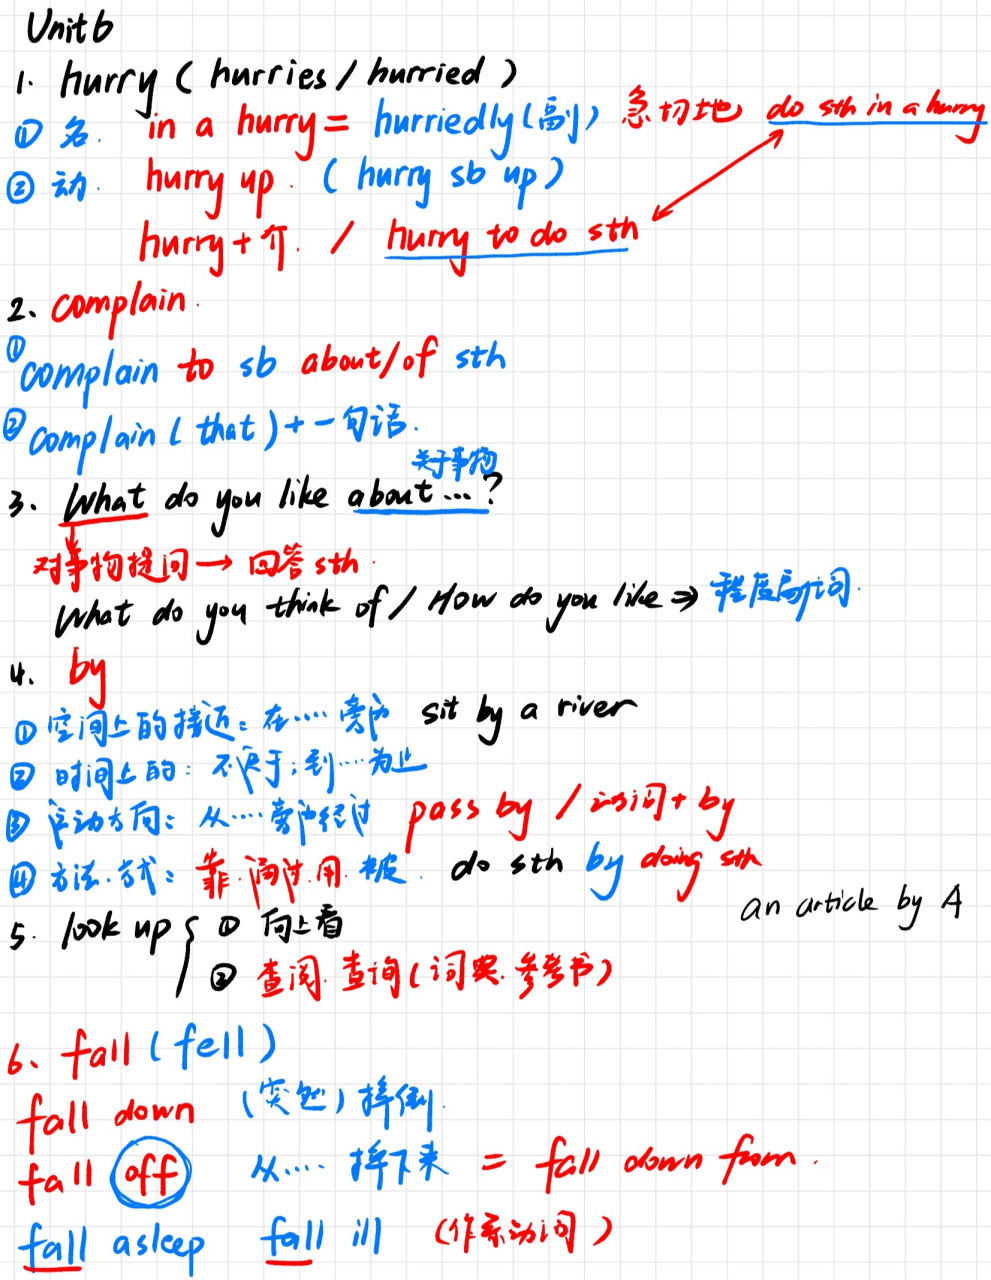 Unit 6
1. hurry ( hurries / hurried )
① 名. in a hurry = hurriedly (副) 急切地 do sth in a hurry
② 动. hurry up. ( hurry sb up )
hurry + 介. / hurry to do sth
2. complain.
① complain to sb about/of sth
② complain ( that ) + 一句话.
关于事物
3. What do you like about ... ?
对事物提问 → 回答 sth.
What do you think of / How do you like ⇒ 程度副词.
4. by
① 空间上的接近: 在…… 旁边 sit by a river
② 时间上的: 不晚于; 到……为止
③ 运动方向: 从…… 旁边经过 pass by / 动词 + by
④ 方法.方式: 靠.通过.用.被. do sth by doing sth
an article by A
5. look up { ① 向上看
② 查阅.查询 ( 词典.参考书 )
6. fall ( fell )
fall down (突然) 摔倒.
fall off 从…… 摔下来 = fall down from.
fall asleep fall ill (作系动词)